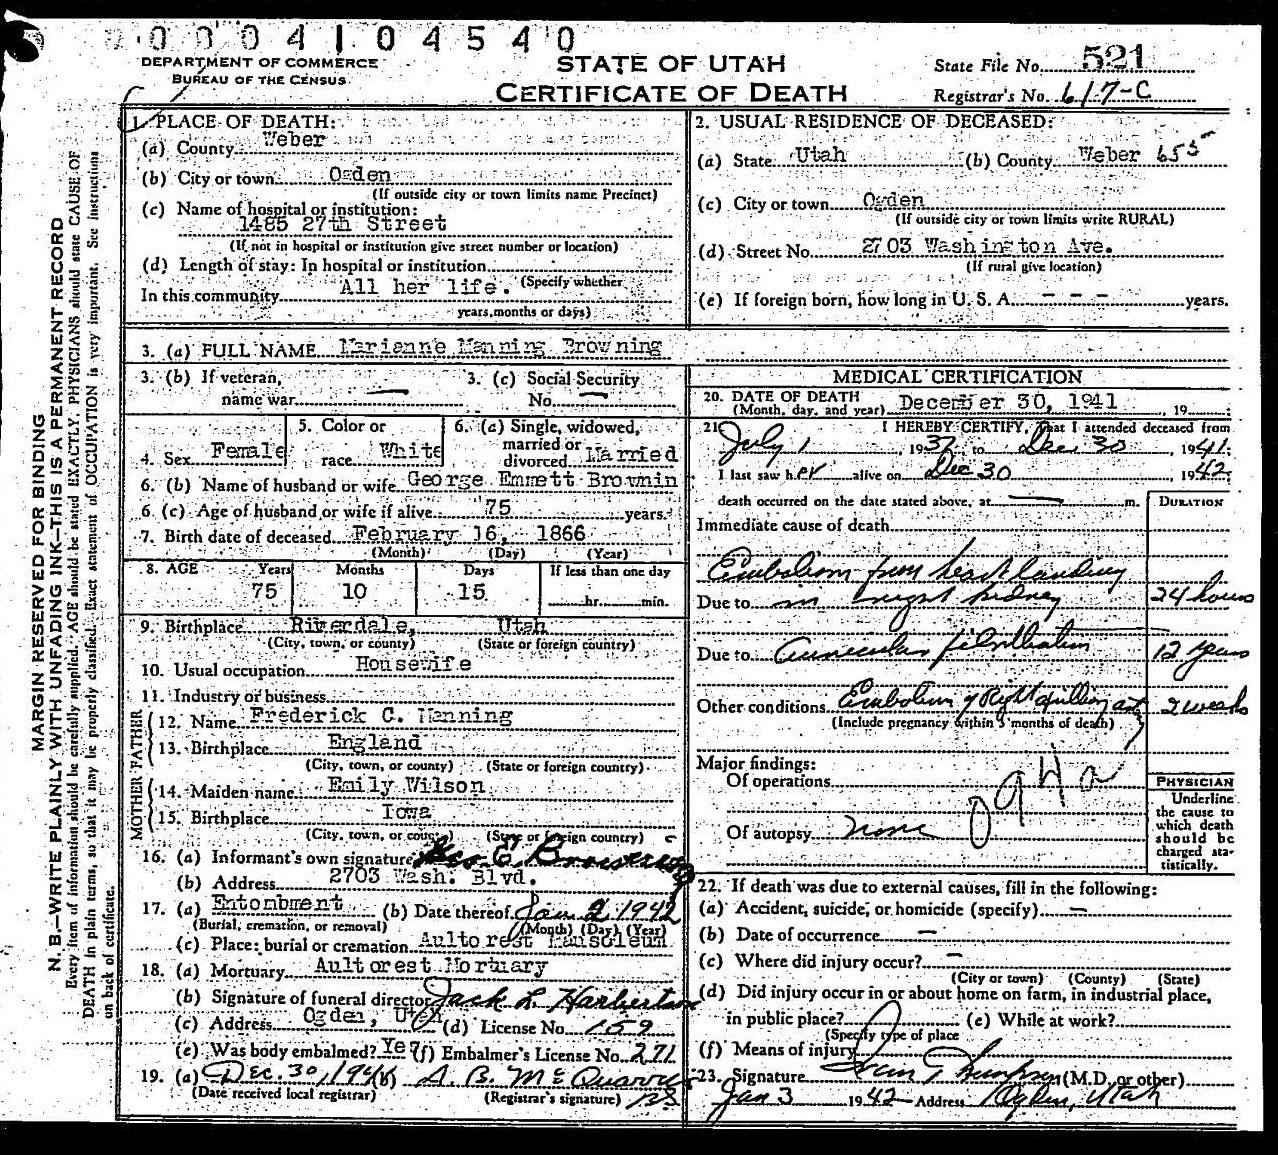 0004104540
DEPARTMENT OF COMMERCE
BUREAU OF THE CENSUS
STATE OF UTAH
CERTIFICATE OF DEATH
State File No. 521
Registrar's No. 617-C
MARGIN RESERVED FOR BINDING
N. B.—WRITE PLAINLY WITH UNFADING INK—THIS IS A PERMANENT RECORD
Every item of information should be carefully supplied. AGE should be stated EXACTLY. PHYSICIANS should state CAUSE OF
DEATH in plain terms, so that it may be properly classified. Exact statement of OCCUPATION is very important. See instructions
on back of certificate.
1. PLACE OF DEATH:
(a) County Weber
(b) City or town Ogden
(If outside city or town limits name Precinct)
(c) Name of hospital or institution:
1485 27th Street
(If not in hospital or institution give street number or location)
(d) Length of stay: In hospital or institution
In this community All her life. (Specify whether
years, months or days)
2. USUAL RESIDENCE OF DECEASED:
(a) State Utah (b) County Weber 655
(c) City or town Ogden
(If outside city or town limits write RURAL)
(d) Street No. 2703 Washington Ave.
(If rural give location)
(e) If foreign born, how long in U. S. A. - - - years.
3. (a) FULL NAME Marianne Manning Browning
3. (b) If veteran, name war —
3. (c) Social Security No. —
4. Sex Female
5. Color or race White
6. (a) Single, widowed, married or divorced Married
6. (b) Name of husband or wife George Emmett Brownin
6 (c) Age of husband or wife if alive 75 years.
7. Birth date of deceased February 16, 1866
(Month) (Day) (Year)
8. AGE Years Months Days If less than one day
75 10 15 hr. min.
9. Birthplace Riverdale, Utah
(City, town, or county) (State or foreign country)
10. Usual occupation Housewife
11. Industry or business
FATHER
12. Name Frederick C. Manning
13. Birthplace England
(City, town, or county) (State or foreign country)
MOTHER
14. Maiden name Emily Wilson
15. Birthplace Iowa
(City, town, or county) (State or foreign country)
16. (a) Informant's own signature Geo E. Browning
(b) Address 2703 Wash. Blvd.
17. (a) Entombment (b) Date thereof Jan 2 1942
(Burial, cremation, or removal) (Month) (Day) (Year)
(c) Place: burial or cremation Aultorest Mausoleum
18. (a) Mortuary Aultorest Mortuary
(b) Signature of funeral director Jack L. Harbertson
(c) Address Ogden, Utah (d) License No. 159
(e) Was body embalmed? Yes (f) Embalmer's License No. 271
19. (a) Dec. 30, 1941 (b) A. B. McQuarrie
(Date received local registrar) (Registrar's signature) BS
MEDICAL CERTIFICATION
20. DATE OF DEATH
(Month, day, and year) December 30, 1941, 19
21. I HEREBY CERTIFY, That I attended deceased from
July 1 1937 to Dec 30, 1941;
I last saw her alive on Dec 30 1942;
death occurred on the date stated above, at — m.
DURATION
Immediate cause of death
Embolism from heart landing
Due to in right kidney 24 hours
Due to Auricular fibrillation 12 years
Other conditions Embolism of Right 2 weeks
(Include pregnancy within 3 months of death)
Major findings:
Of operations
Of autopsy none
PHYSICIAN
Underline
the cause to
which death
should be
charged sta-
tistically.
22. If death was due to external causes, fill in the following:
(a) Accident, suicide, or homicide (specify) —
(b) Date of occurrence —
(c) Where did injury occur? —
(City or town) (County) (State)
(d) Did injury occur in or about home on farm, in industrial place,
in public place? (e) While at work?
(Specify type of place)
(f) Means of injury
23. Signature Thompson (M.D. or other)
Jan 3 1942 Address Ogden, Utah